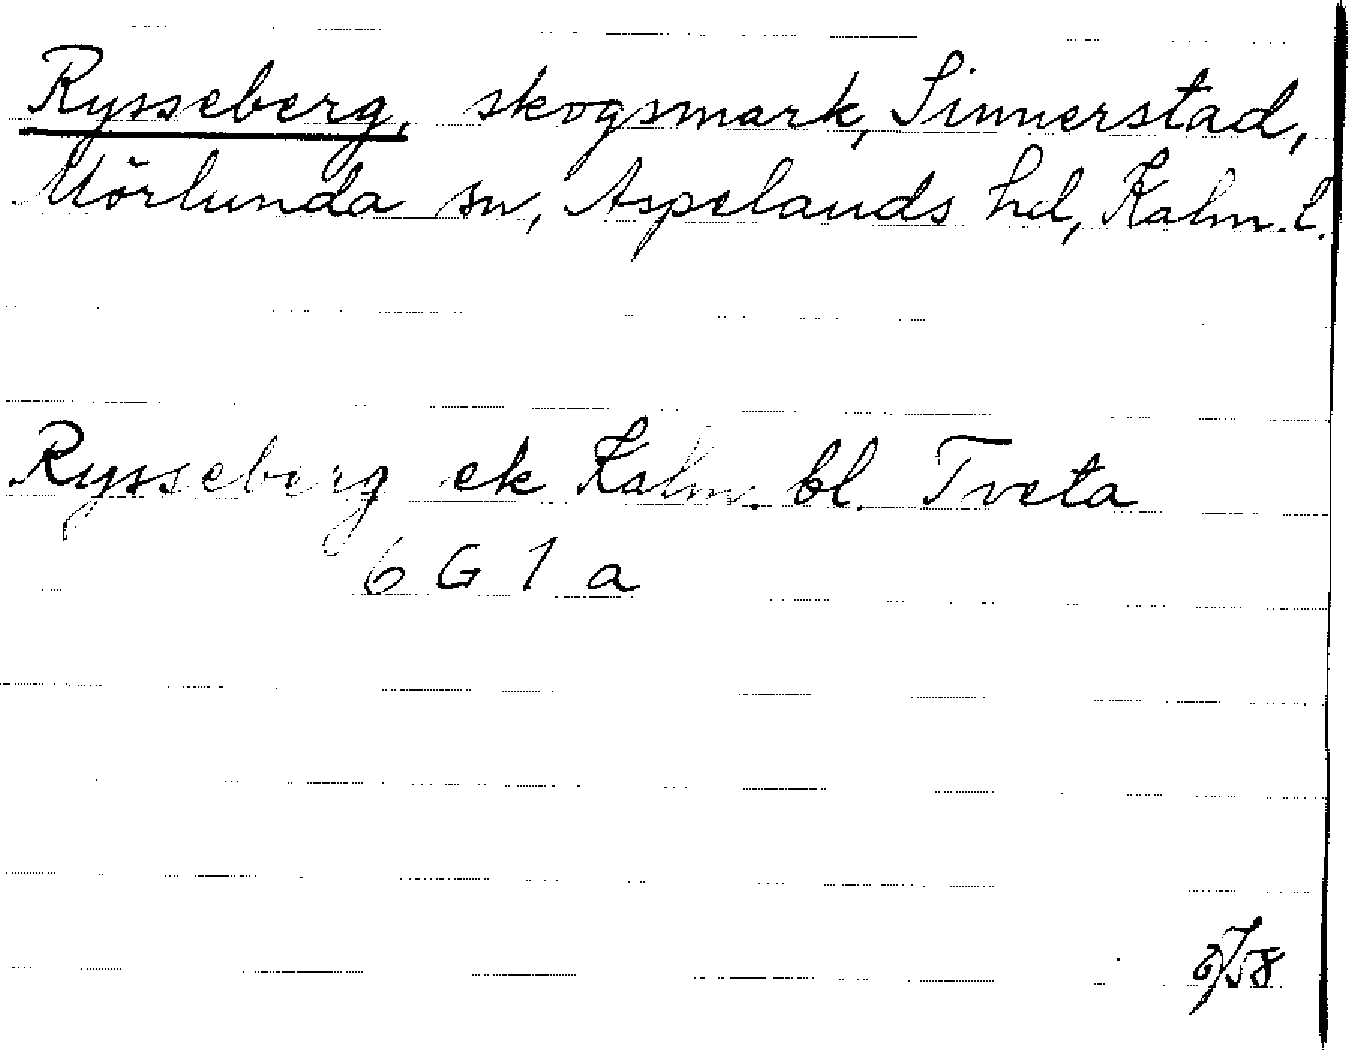 Rysseberg, skogsmark, Sinnerstad,
Mörlunda sn, Aspelands hd, Kalm. l.
Rysseberg ek Kalm. bl. Tveta
6 G 1 a